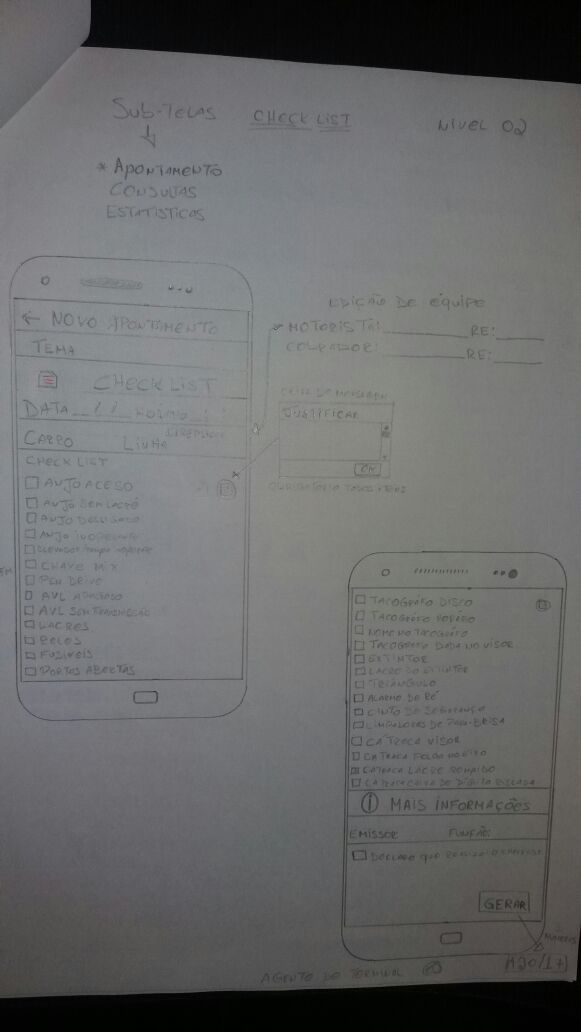 SUB-TELAS CHECK LIST NIVEL 02
* APONTAMENTO
CONSULTAS
ESTATISTICAS
← NOVO APONTAMENTO
TEMA
CHECK LIST
DATA _/_/_ HORÁRIO :
CARRO LINHA
CHECK LIST
ANJO ACESO
ANJO SEM LACRE
ANJO DESLIGADO
ANJO INOPERANTE
CHAVE MIX
PEN DRIVE
AVL APAGADO
AVL SEM TRANSMISSÃO
LACRES
BELOS
FUSIVEIS
PORTAS ABERTAS
EDIÇÃO DE EQUIPE
MOTORISTA: RE:
COBRADOR: RE:
CAIXA DE MENSAGEM
JUSTIFICAR
OK
OBRIGATÓRIO TODOS ITENS
TACOGRÁFO DISCO
TACOGRÁFO HORÁRIO
NOME NO TACOGRÁFO
TACOGRÁFO DATA NO VISOR
EXTINTOR
LACRE DO EXTINTOR
TRIÂNGULO
ALARME DE RÉ
CINTO DE SEGURANÇA
LIMPADORES DE PARA-BRISA
CATRACA VISOR
CATRACA LACRE ROMPIDO
i MAIS INFORMAÇÕES
EMISSOR: FUNÇÃO:
DECLARO QUE REALIZEI O CHECK LIST
GERAR
AGENTE DO TERMINAL